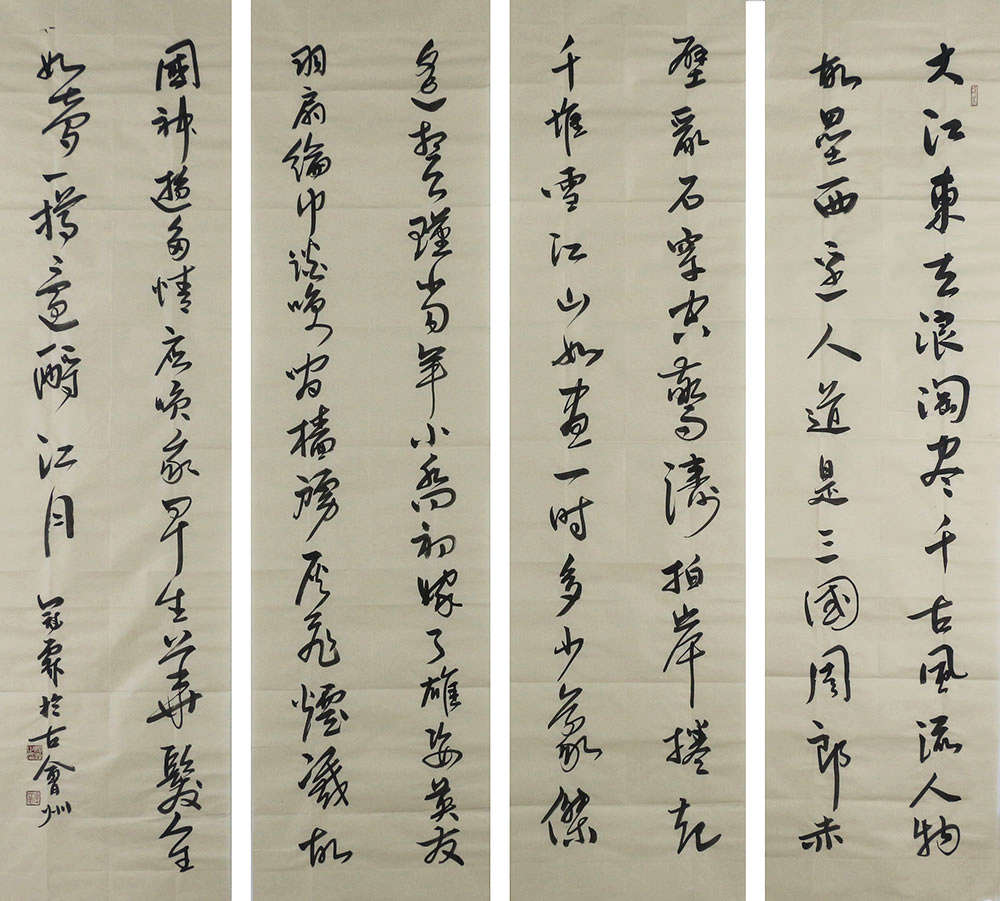 大江東去浪淘尽千古風流人物
故壘西邊人道是三國周郎赤
壁亂石穿空驚濤拍岸捲起
千堆雪江山如畫一时多少豪傑
遙想公瑾當年小喬初嫁了雄姿英发
羽扇綸巾談咲间檣艣灰飛煙滅故
國神遊多情应咲我早生華髮人生
如夢一樽還酹江月
冠霖於古會州